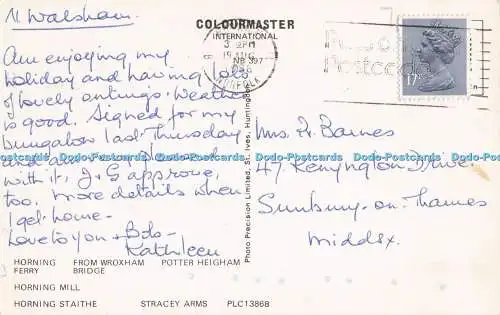 N. Walsham.
COLOURMASTER
INTERNATIONAL
Am enjoying my
holiday and having lots
of lovely outings. Weather
is good. Signed for my
bungalow last Thursday
and am so pleased
with it, J & G approve,
too. More details when
I get home -
Love to you + Bob -
Kathleen
3 PM
NB 397
NORFOLK
Postcode
17
Mrs. H. Barnes
47, Kenyngton Drive.
Sunbury-on-Thames
Middx.
Photo Precision Limited, St. Ives, Huntingdon
Dodo-Postcards Dodo-Postcards Dodo-Postcards Dodo-Postcards Dodo-Postcards
HORNING FROM WROXHAM POTTER HEIGHAM
FERRY BRIDGE
HORNING MILL
HORNING STAITHE STRACEY ARMS PLC13868